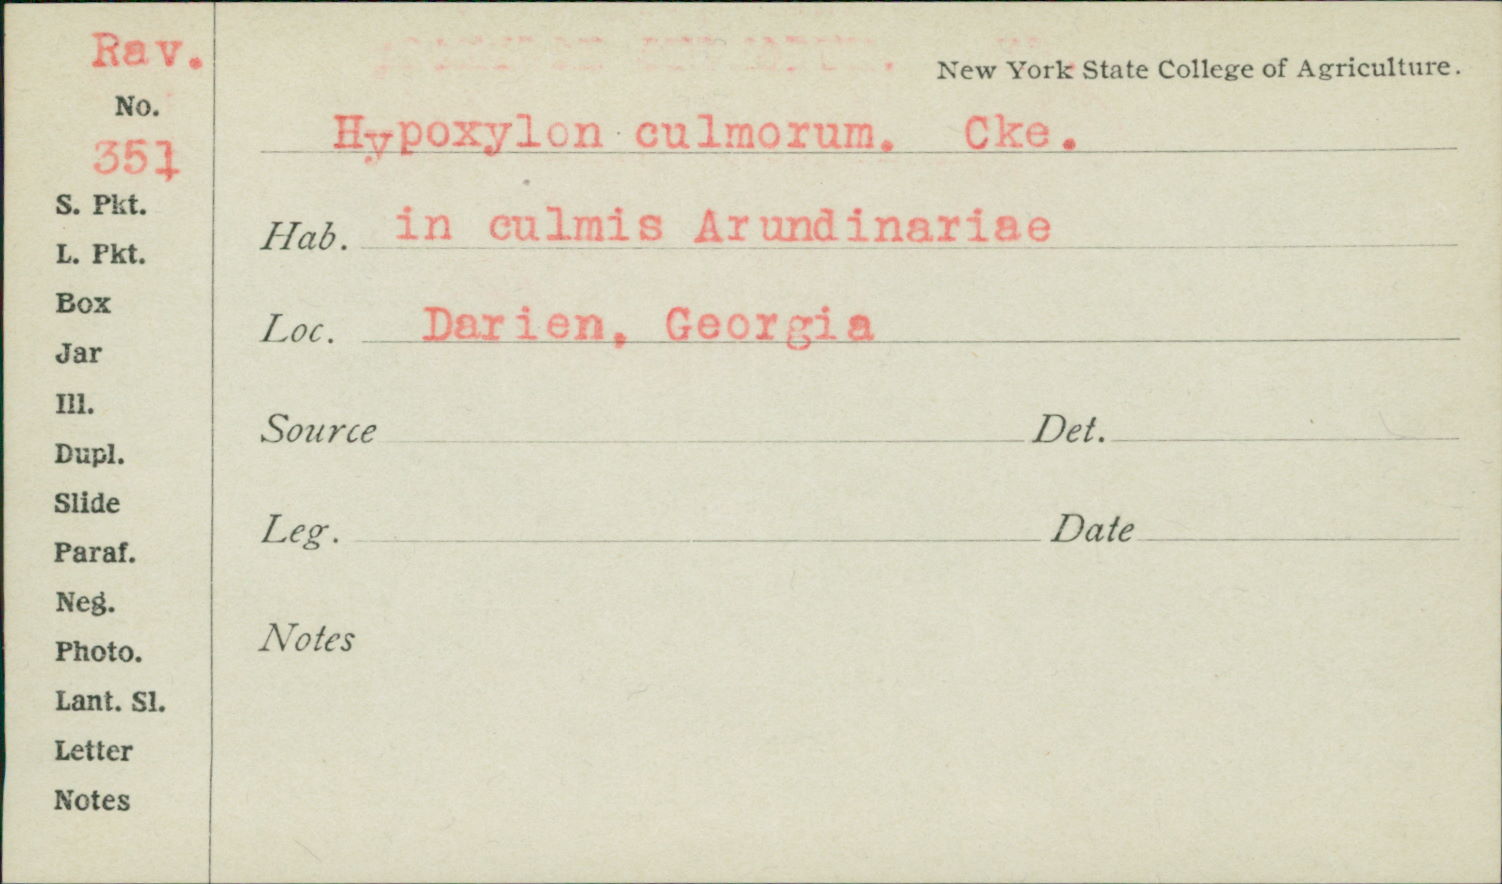 Rav.
No.
351
S. Pkt.
L. Pkt.
Box
Jar
Ill.
Dupl.
Slide
Paraf.
Neg.
Photo.
Lant. Sl.
Letter
Notes
New York State College of Agriculture.
Hypoxylon culmorum. Cke.
Hab. in culmis Arundinariae
Loc. Darien, Georgia
Source Det.
Leg. Date
Notes